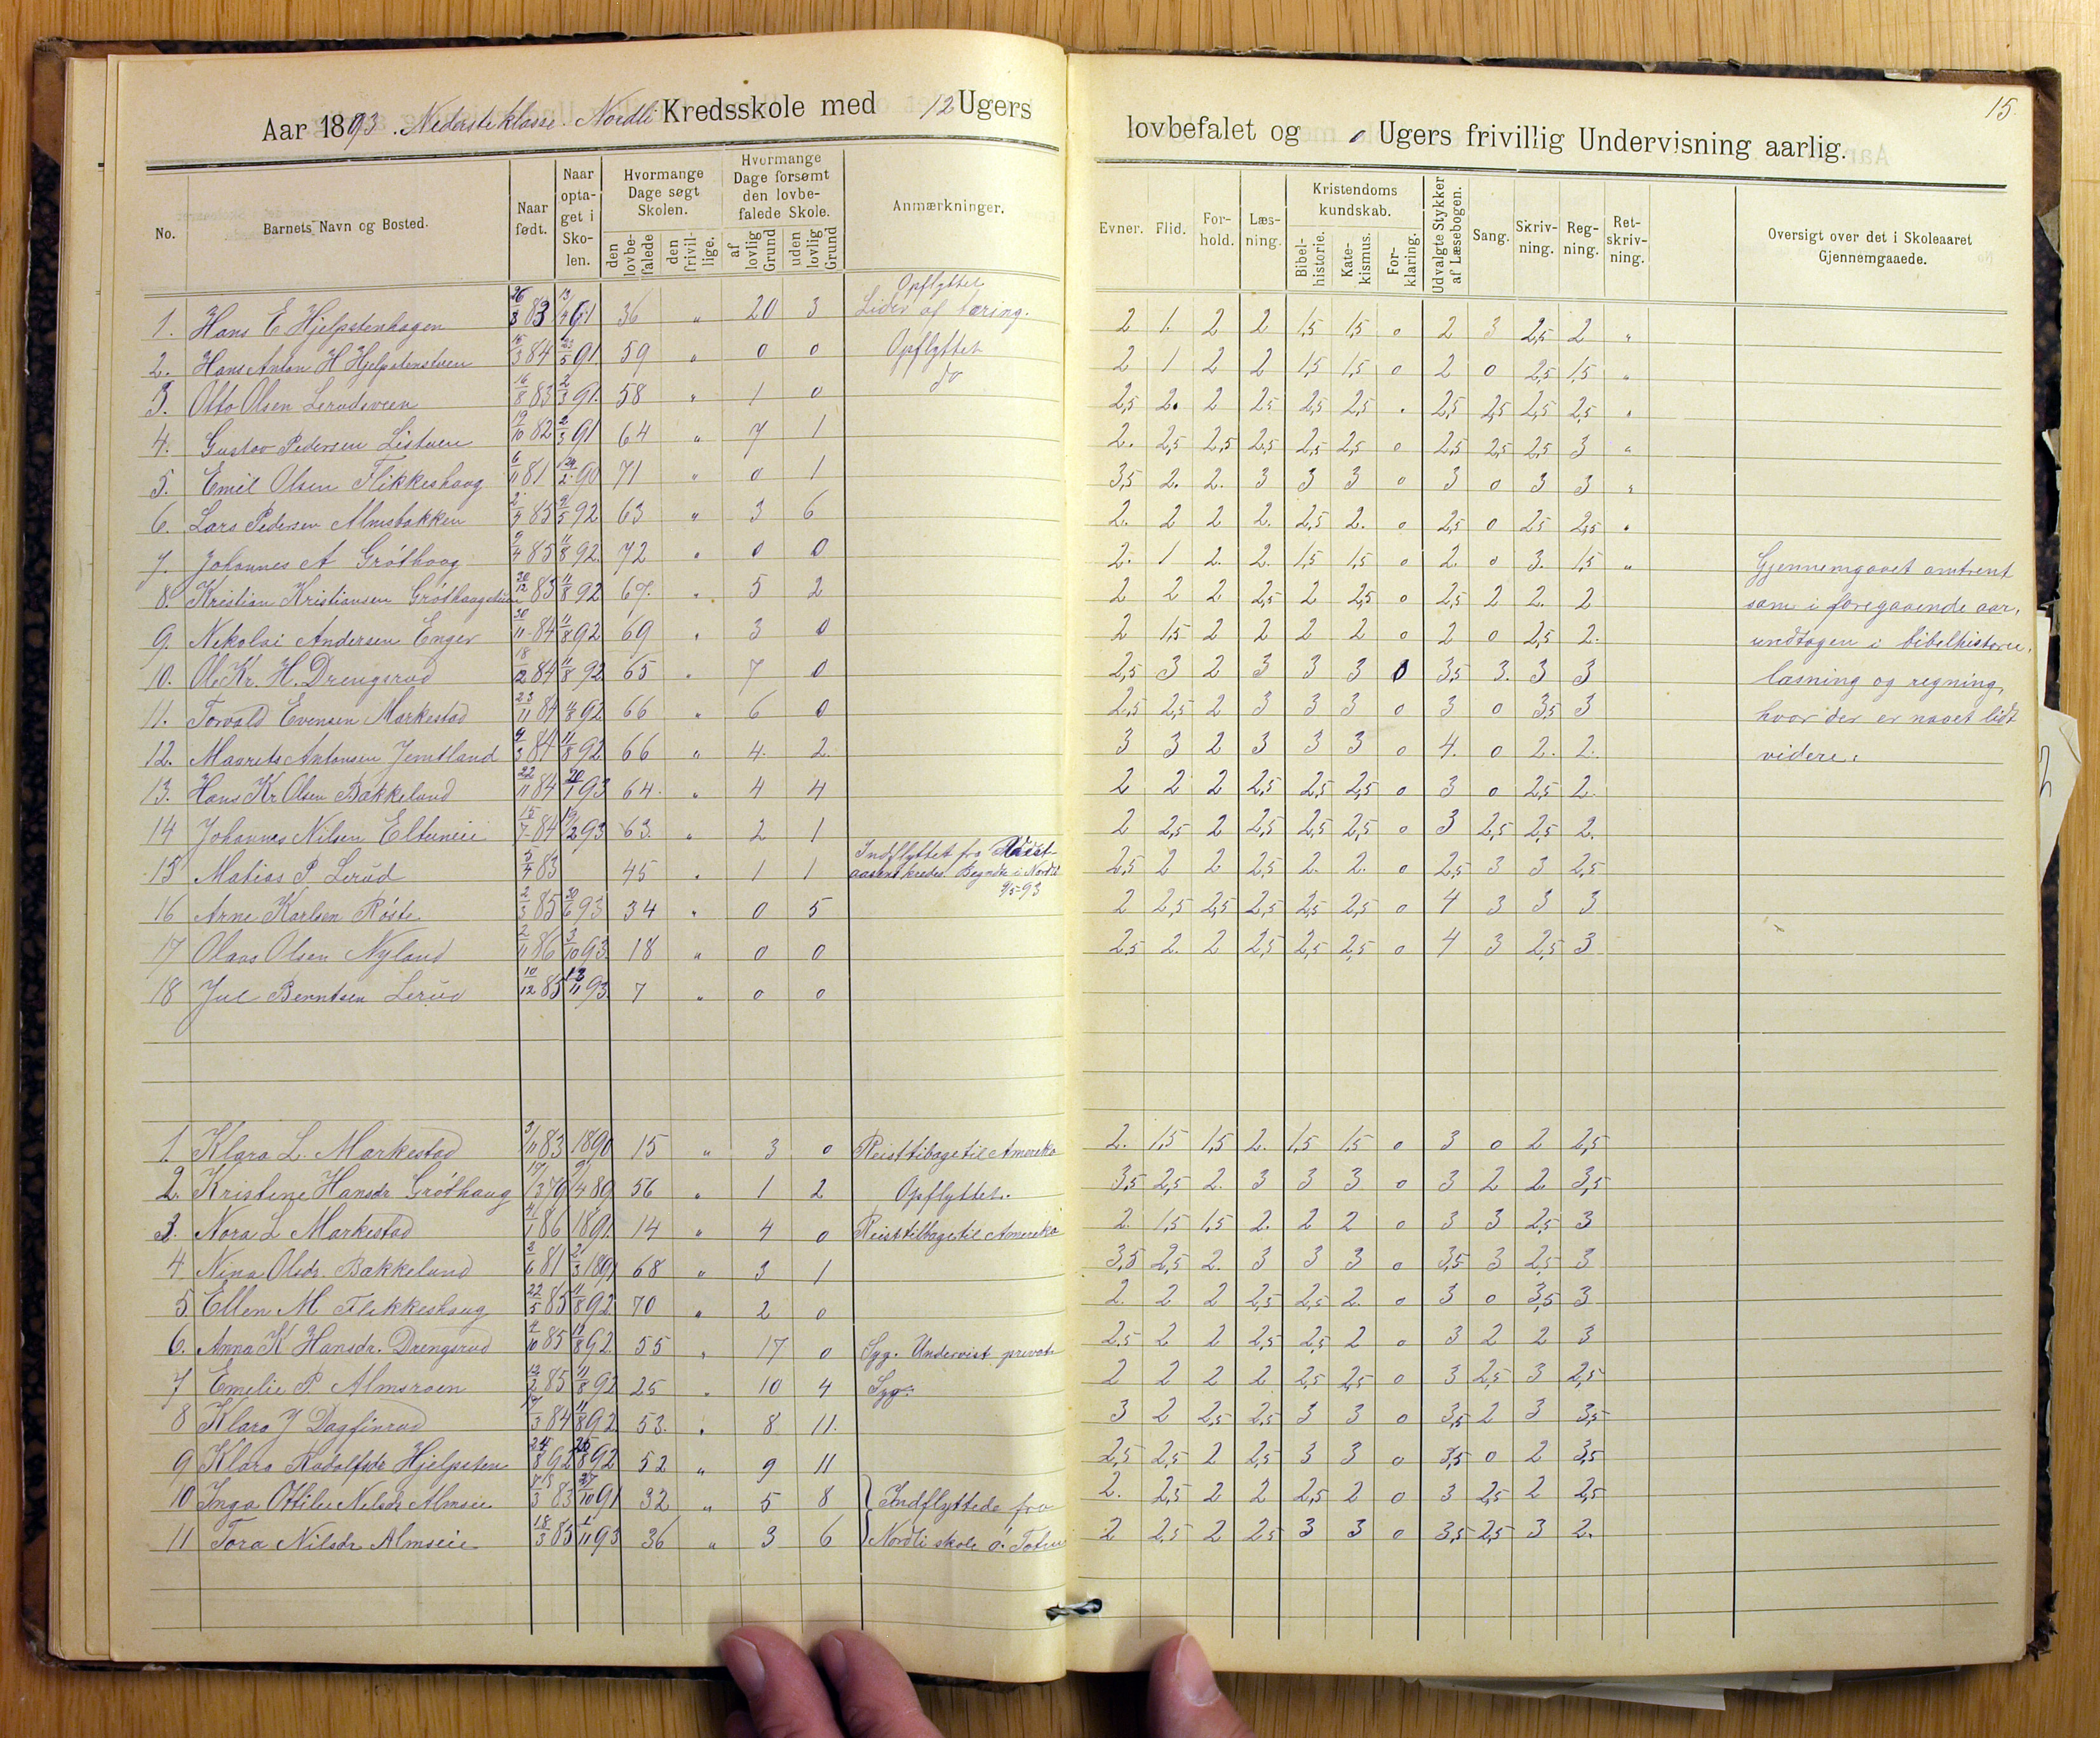 Aar 1893. Nederste klasse. Nordli Kredsskole med 12 Ugers
lovbefalet og o Ugers frivillig Undervisning aarlig.
15.
No. Barnets Navn og Bosted. Naar født. Naar optaget i Skolen. Hvormange Dage søgt Skolen. den lovbefalede den frivillige. Hvormange Dage forsømt den lovbefalede Skole. af lovlig Grund uden lovlig Grund Anmærkninger.
Evner. Flid. Forhold. Læsning. Kristendoms kundskab. Bibelhistorie. Katekismus. Forklaring. Udvalgte Stykker af Læsebogen. Sang. Skrivning. Regning. Retskrivning. Oversigt over det i Skoleaaret Gjennemgaaede.
1. Hans E Hjelpstenhagen 26/8 83 13/4 91 36 " 20 3 Opflyttet Lider af tæring. 2 1. 2 2 1,5 1,5 o 2 3 2,5 2 "
2. Hans Anton H Hjelpstenstuen 3 84 23/5 91. 59 " 0 0 Opflyttet 2 1 2 2 1,5 1,5 o 2 0 2,5 1,5 "
3. Otto Olsen Lerudsveen 16/8 83 2/3 91. 58 " 1 0 do 2,5 2. 2 2,5 2,5 2,5 . 2,5 2,5 2,5 2,5 "
4. Gustav Pedersen Listuen 19/10 82 2/3 91 64 " 7 1 2. 2,5 2,5 2,5 2,5 2,5 o 2,5 2,5 2,5 3 "
5. Emil Olsen Flikkeshaug 6/11 81 2 90 71 " 0 1 3,5 2. 2. 3 3 3 o 3 0 3 3 "
6. Lars Pedersen Almsbakken 2/4 85 2/5 92 63 " 3 6 2. 2 2 2. 2,5 2. o 2,5 0 2,5 2,5 "
7. Johannes A Gróthaag 9/4 85 11/8 92. 72 " 0 0 2. 1 2. 2. 1,5 1,5 o 2. 0 3. 1,5 " Gjennemgaaet omtrent
8. Kristian Kristiansen Gróthaagstuen 20/12 83 11/8 92 67. " 5 2 2 2 2 2,5 2 2,5 o 2,5 2 2. 2 som i foregaaende aar,
9. Nikolai Andersen Enger 30/11 84 11/8 92 69 " 3 0 2 1,5 2 2 2 2 o 2 0 2,5 2. undtagen i bibelhistorie,
10. Ole Kr. H. Drengsrud 18/12 84 11/8 92 65 " 7 0 2,5 3 2 3 3 3 0 3,5 3. 3 3 læsning og regning,
11. Torvald Evensen Markestad 23/11 84 11/8 92 66 " 6 0 2,5 2,5 2 3 3 3 o 3 0 3,5 3 hvor der er naaet lidt
12. Maurits Antonsen Jemtland 9/3 84 11/8 92 66 " 4. 2. 3 3 2 3 3 3 o 4. 0 2. 2. videre.
13. Hans Kr Olsen Bakkelund 22/11 84 20/1 93 64. " 4 4 2 2 2 2,5 2,5 2,5 o 3 0 2,5 2.
14 Johannes Nilsen Eltuneie 15/7 84 2 93 63. " 2 1 2 2,5 2 2,5 2,5 2,5 o 3 2,5 2,5 2.
15 Matias P. Lerud 5/4 83 45 " 1 1 Indflyttet fra aasens kreds. Begndte i Nordli 9/5-93 2,5 2 2 2,5 2. 2. o 2,5 3 3 2,5
16 Arne Karlsen Róste 2/3 85 20/6 93 34 " 0 5 2 2,5 2,5 2,5 2,5 2,5 o 4 3 3 3
17 Olaus Olsen Nyland 2/11 86 3/10 93. 18 " 0 0 2,5 2. 2 2,5 2,5 2,5 o 4 3 2,5 3
18 Jul Berntsen Lerud 10/12 85 13/11 93. 7 " 0 0
1. Klara L. Markestad 3/11 83 1890 15 " 3 0 Reist tibage til Amereka 2. 1,5 1,5 2. 1,5 1,5 o 3 0 2 2,5
2. Kristine Hansdr Gróthaug 3 79 4 89 56 " 1 2 Opflyttet. 3,5 2,5 2. 3 3 3 o 3 2 2 3,5
3. Nora L Markestad 1 86 1891. 14 " 4 0 Reist tilbage til Amereka 2. 1,5 1,5 2. 2 2 o 3 3 2,5 3
4 Nina Olsdr. Bakkelund 2/6 81 2/3 1891 68 " 3 1 3,5 2,5 2. 3 3 3 o 3,5 3 2,5 3
5 Ellen M Flikkeshaug 22/5 85 11/8 92 70 " 2 0 2. 2 2 2,5 2,5 2. o 3 0 3,5 3
6. Anna K Hansdr. Drengsrud 4/10 85 8 92. 55 " 17 0 Syg. Undervist privat 2,5 2 2 2,5 2,5 2 o 3 2 2 3
7 Emelie P. Almsroen 12/2 85 11/8 92 25 " 10 4 Syg. 2 2 2 2 2,5 2,5 o 3 2,5 3 2,5
8 Klara J Dagfinrud 17/3 84 11/8 92 53. " 8 11. 3 2 2,5 2,5 3 3 o 3,5 2 3 3,5
9 Klara Rudolfsdr Hjelpsten 8 92 8 92 52 " 9 11 2,5 2,5 2 2,5 3 3 o 3,5 0 2 3,5
10 Inga Ottilie Nilsdr Almseie 3 83 27/10 91 32 " 5 8 Indflyttede fra 2. 2,5 2 2 2,5 2 o 3 2,5 2 2,5
11 Tora Nilsdr Almseie 18/3 85 1/11 93 36 " 3 6 Nordli skole 2 2,5 2 2,5 3 3 o 3,5 2,5 3 2.